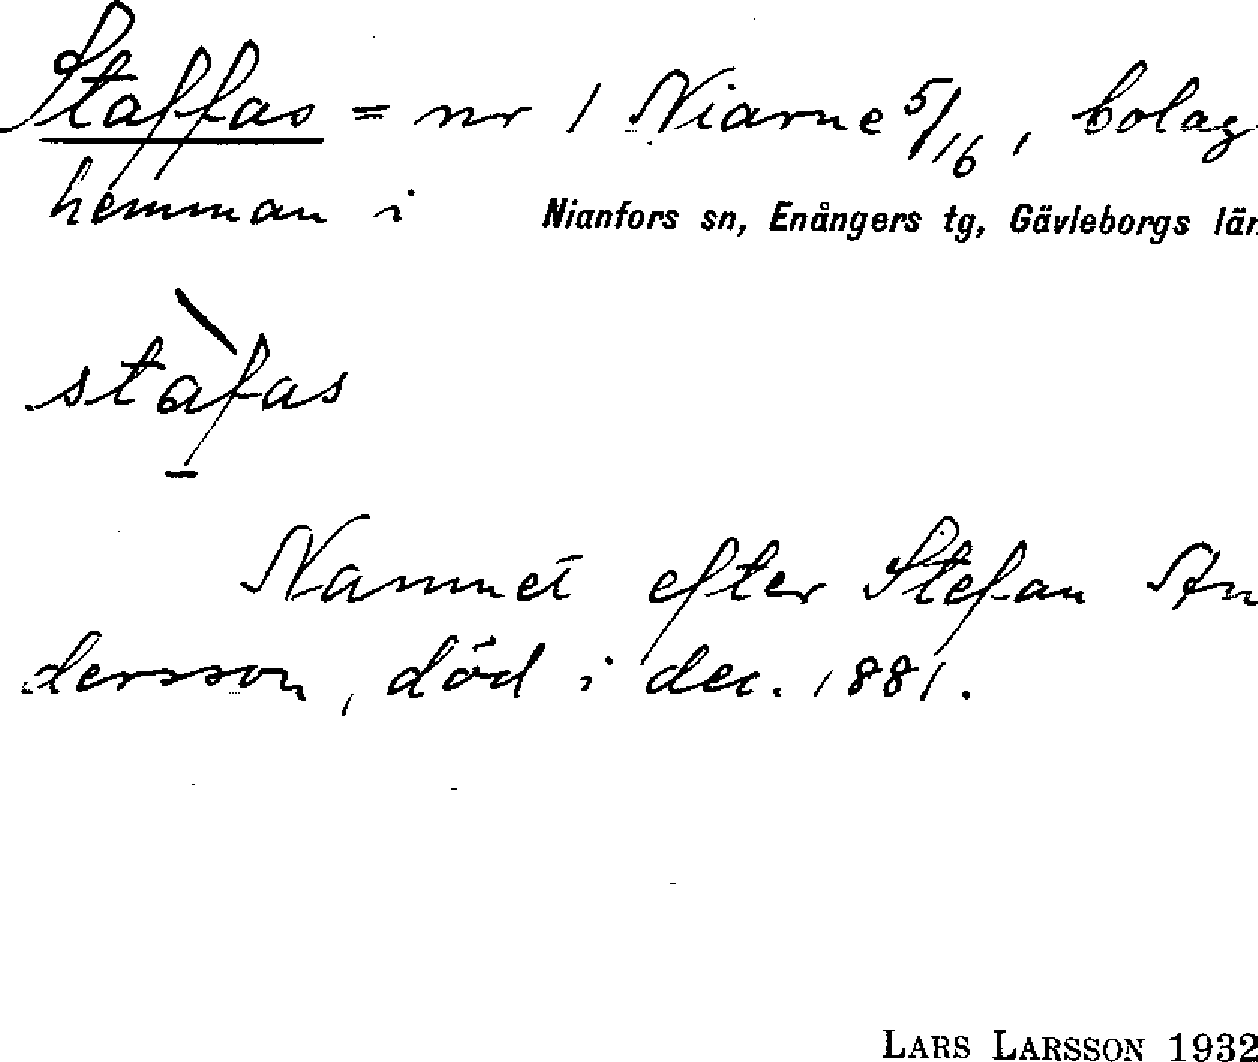 Staffas = nr 1 Niarne 5/16, bolag
hemman i Nianfors sn, Enångers tg, Gävleborgs län
stàfas
Namnet efter Stefan An
dersson, död i dec. 1881.
LARS LARSSON 1932